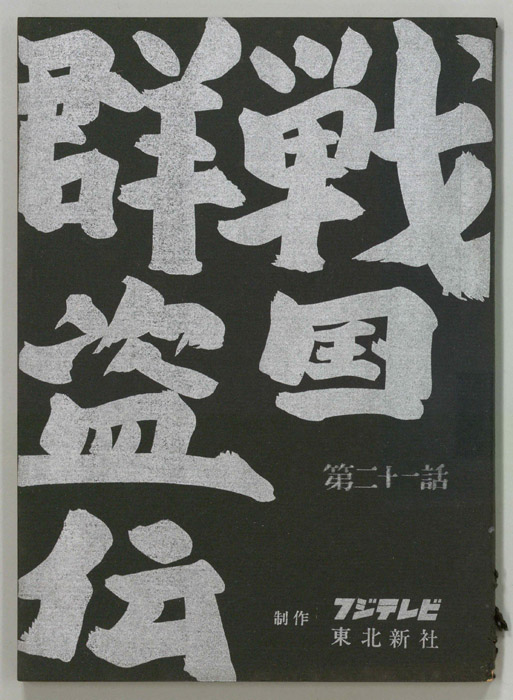 戦国
群盗伝
第二十一話
制作 フジテレビ
東北新社